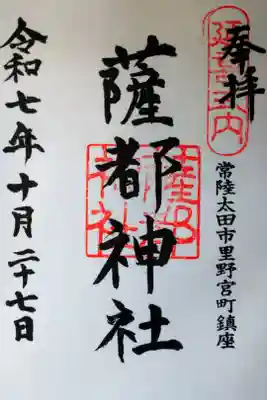 奉拝
延喜式内
常陸太田市里野宮町鎮座
薩都神社
薩都神社
令和七年十月二十七日